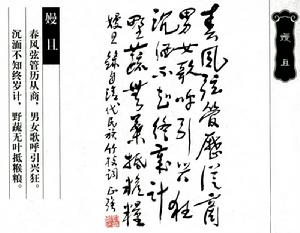 嫚且
春風弦管歷從商
男女歌呼引興狂
沉湎不知終歲計
野蔬無葉抵糇糧
嫚且 錄自清代民族竹枝詞
嫚且
春风弦管历从商,男女歌呼引兴狂。
沉湎不知终岁计,野蔬无叶抵糇粮。